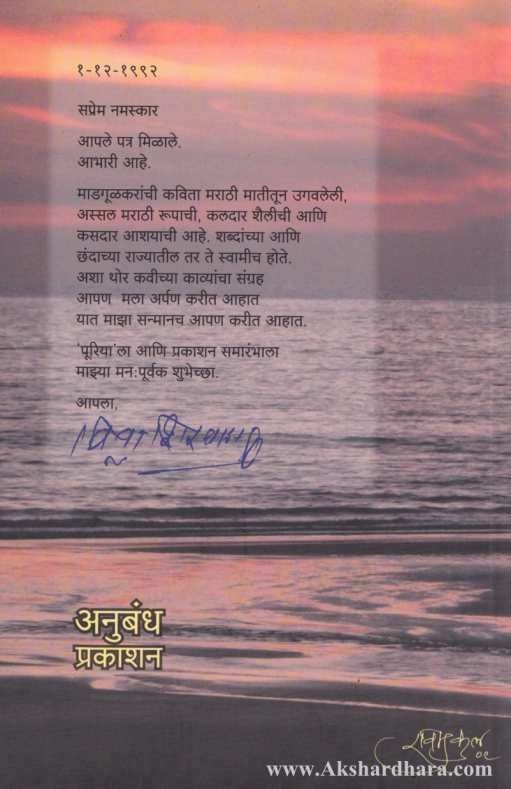 १-१२-१९९२
सप्रेम नमस्कार
आपले पत्र मिळाले.
आभारी आहे.
माडगूळकरांची कविता मराठी मातीतून उगवलेली,
अस्सल मराठी रूपाची, कलदार शैलीची आणि
कसदार आशयाची आहे. शब्दांच्या आणि
छंदाच्या राज्यातील तर ते स्वामीच होते.
अशा थोर कवीच्या काव्यांचा संग्रह
आपण मला अर्पण करीत आहात
यात माझा सन्मानच आपण करीत आहात.
'पूरिया'ला आणि प्रकाशन समारंभाला
माझ्या मन:पूर्वक शुभेच्छा.
आपला,
अनुबंध
प्रकाशन
०९
www.Akshardhara.com